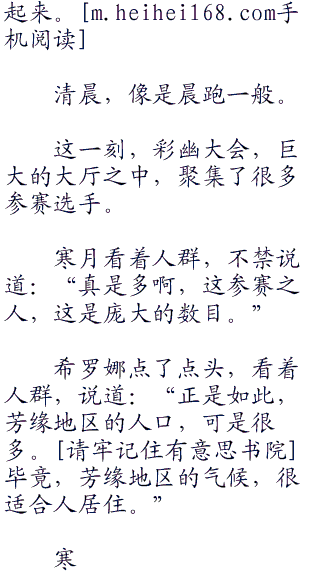 起来。[m.heihei168.com手
机阅读]
清晨，像是晨跑一般。
这一刻，彩幽大会，巨
大的大厅之中，聚集了很多
参赛选手。
寒月看着人群，不禁说
道：“真是多啊，这参赛之
人，这是庞大的数目。”
希罗娜点了点头，看着
人群，说道：“正是如此，
芳缘地区的人口，可是很
多。[请牢记住有意思书院]
毕竟，芳缘地区的气候，很
适合人居住。”
寒